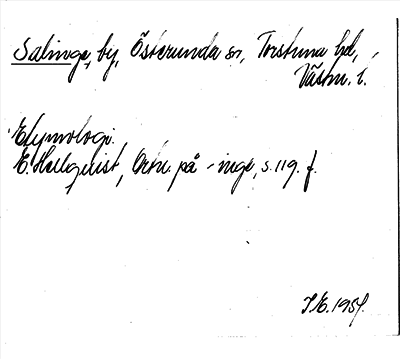 Salinge, by, Österunda sn, Torstuna hd,
Västm. l.
Etymologi.
E. Hellquist, Ortn. på -inge, s. 119. f.
I.E. 1954.